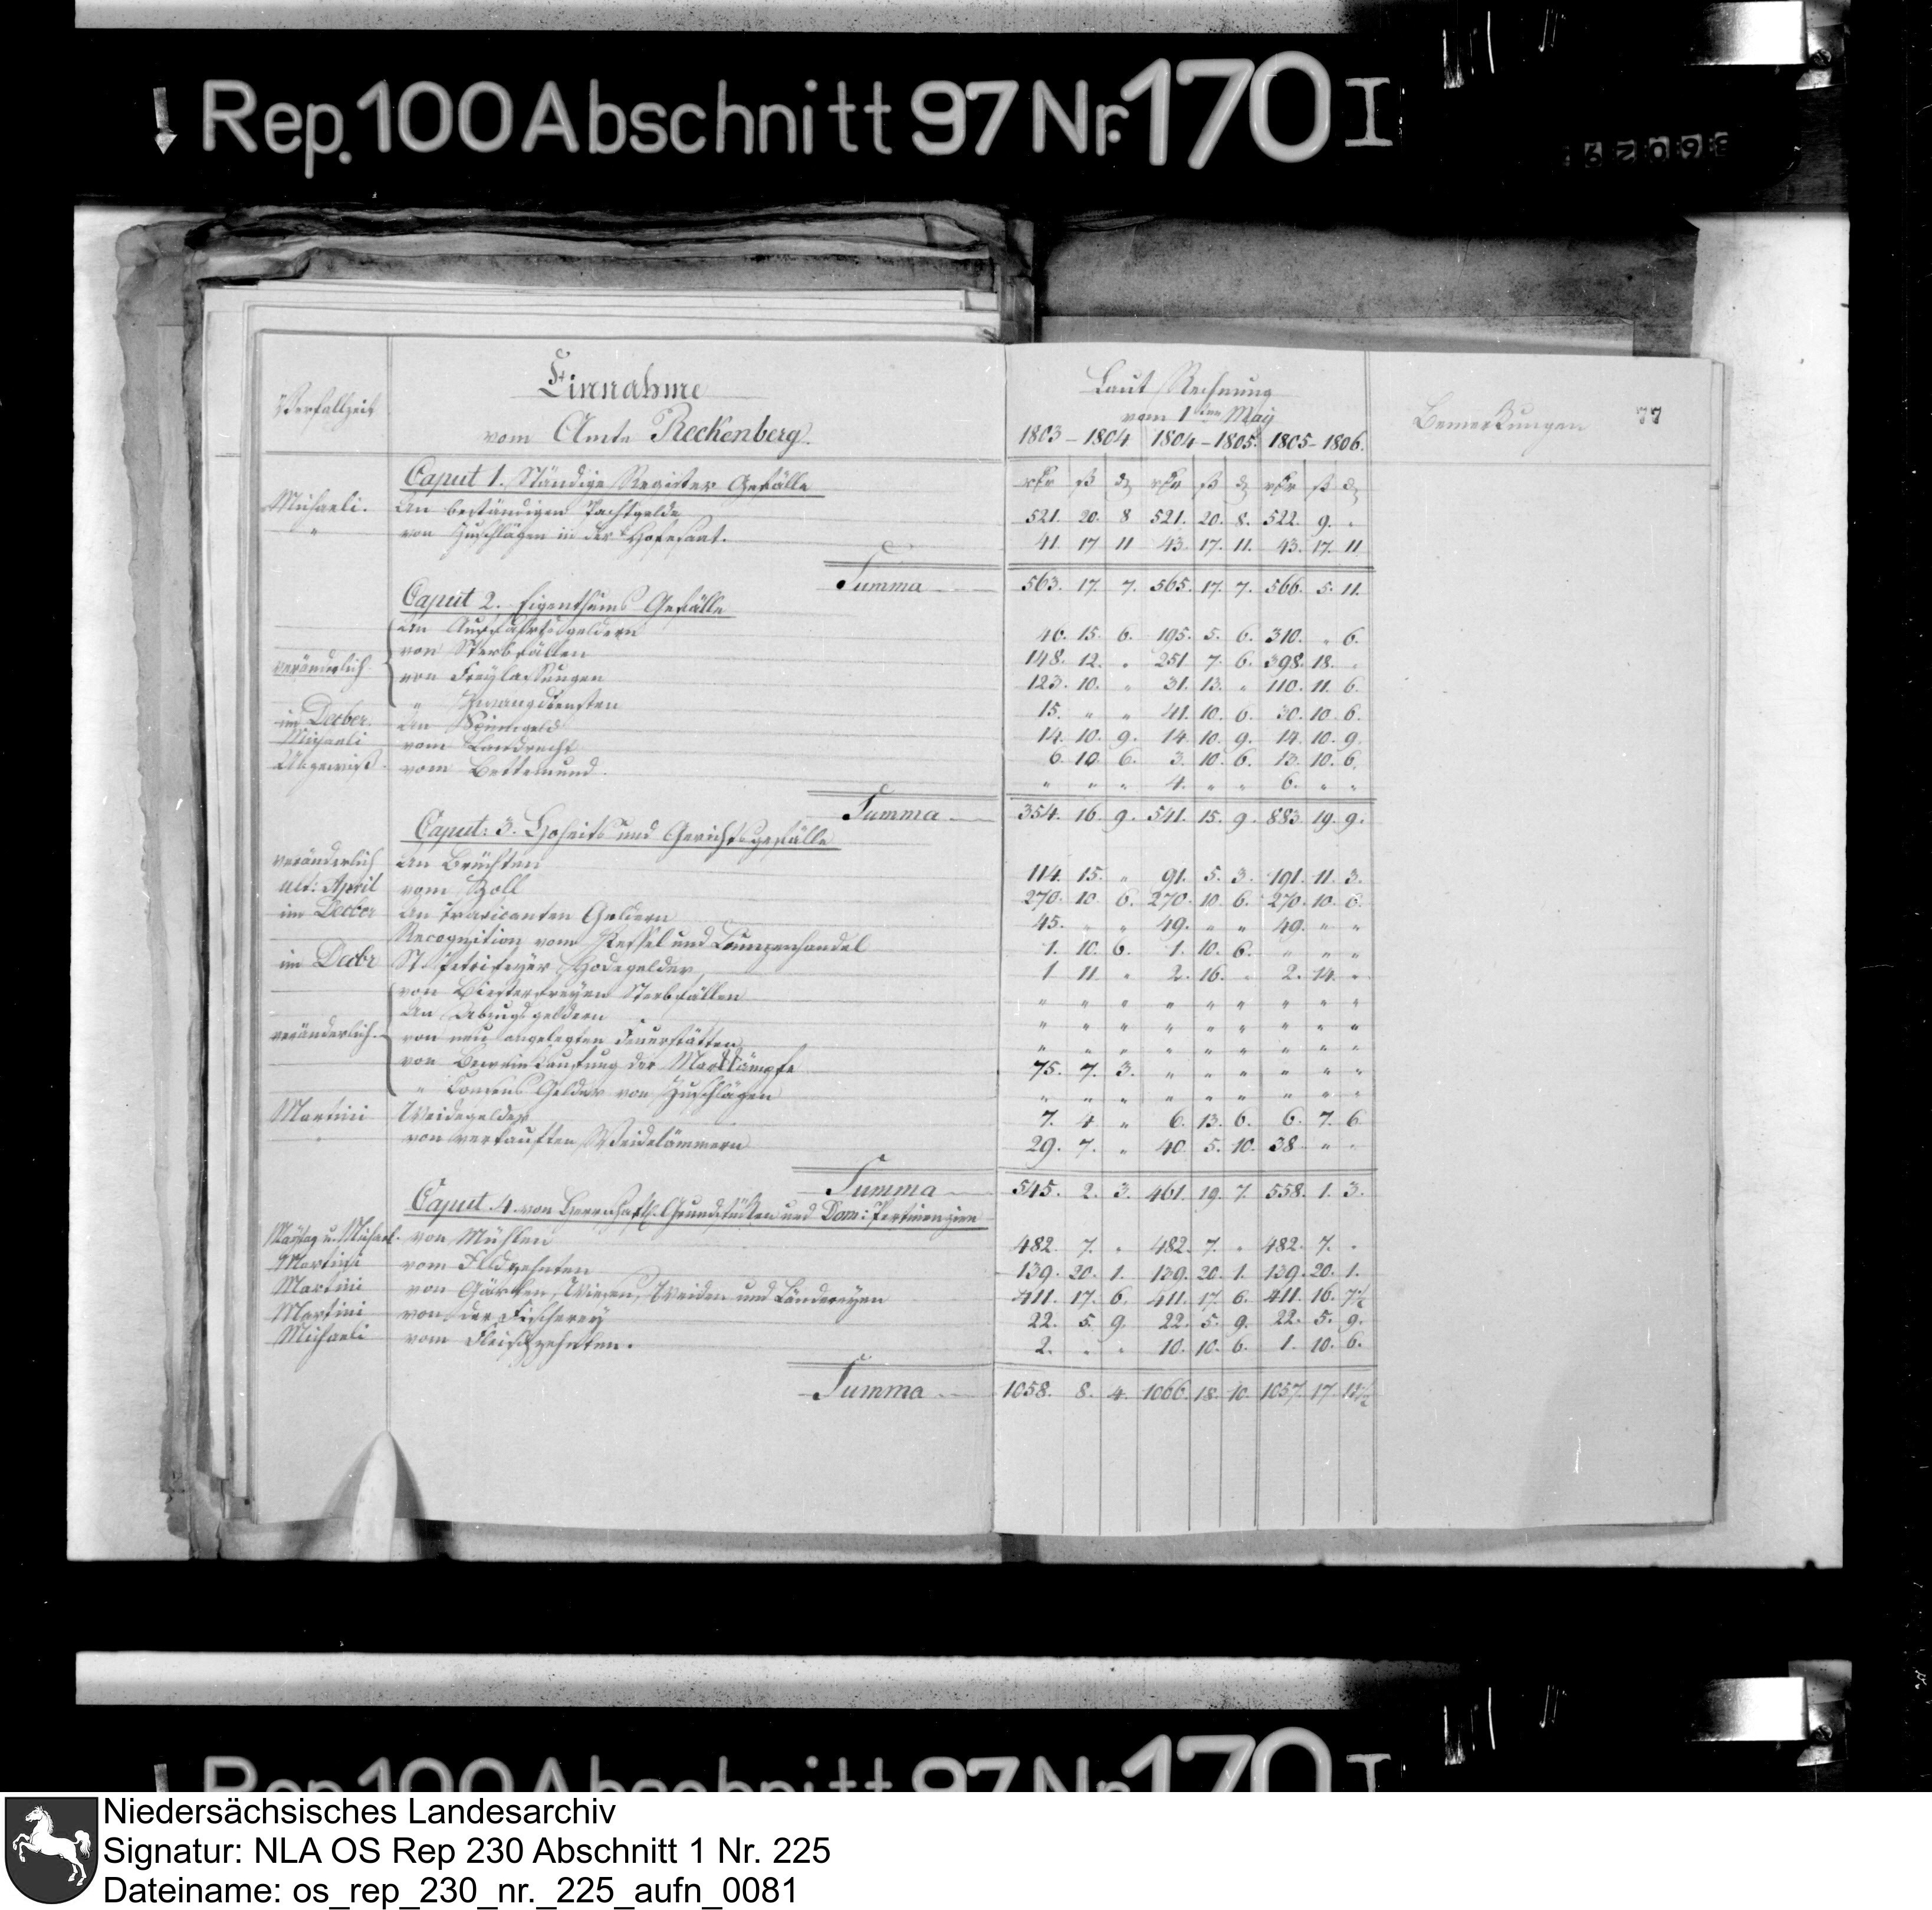 Rep. 100 Abschnitt 97 Nr. 170 I
Verfallzeit
Einnahme
vom Amte Reckenberg.
Laut Rechnung
vom 1ten May
1803 - 1804 1804 - 1805. 1805 - 1806.
Bemerkungen
77
Caput 1. Ständige Register Gefälle
Michaeli. An beständigen Pachtgelde 521. 20. 8 521. 20. 8. 522. 9. "
" von Zuschlägen in der Hofesaat. 41. 17 11 43. 17. 11. 43. 17. 11
Summa 563. 17. 7. 565. 17. 7. 566. 5. 11.
Caput 2. Eigenthums Gefälle
An Auffahrtsgeldern 46. 15. 6. 195. 5. 6. 310. " 6.
von Sterbfällen 148. 12. " 251. 7. 6. 398. 18. "
veränderlich von Freylassungen 123. 10. " 31. 13. " 110. 11. 6.
" Zwangdiensten 15. " " 41. 10. 6. 30. 10. 6.
im Decber. An Spinngeld 14. 10. 9. 14. 10. 9. 14. 10. 9.
Michaeli vom Landrecht 6. 10. 6. 3. 10. 6. 13. 10. 6.
vom Bettemund. " " " 4. " " 6. " "
Summa 354. 16. 9. 541. 15. 9. 883. 19. 9.
Caput: 3. Hoheits und Gerichtsgefälle
veränderlich An Brüchten 114. 15. " 91. 5. 3. 191. 11. 3.
ult: April vom Zoll 270. 10. 6. 270. 10. 6. 270. 10. 6.
im Decber An Geldern 45. " " 49. " " 49. " "
Recognition vom Kessel und Lumpenhandel 1. 10. 6. 1. 10. 6. " " "
im Decbr St. Hodegelder 1 11 " 2. 16. " 2. 14. "
von Biesterfreyen Sterbfällen " " " " " " " " "
An Abzugsgeldern " " " " " " " " "
veränderlich von neu angelegten Feuerstätten " " " " " " " " "
von der Markkämpfe 75. 7. 3. " " " " " "
" Consens Gelder von Zuschlägen " " " " " " " " "
Martini Weidegelder 7. 4 " 6. 13. 6. 6. 7. 6
" von verkauften Weidelämmern 29. 7. " 40. 5. 10. 38 " "
Summa 545. 2. 3. 461. 19. 7. 558. 1. 3.
Caput 4. von Herrschaftl. Grundstücken und Dom: Pertinenzien
Maytag u. Michael. von Mühlen 482. 7. " 482. 7. " 482. 7. "
Martini vom Feldzehnten 139. 20. 1. 139. 20. 1. 139. 20. 1.
Martini von Gärten, Wiesen, Weiden und Ländereyen 411. 17. 6. 411. 17. 6. 411. 16. 7½
Martini von der Fischerey 22. 5. 9. 22. 5. 9. 22. 5. 9.
Michaeli vom Fleischzehnten. 2. " " 10. 10. 6. 1. 10. 6.
Summa 1058. 8. 4. 1066. 18. 10. 1057. 17
Rep. 100 Abschnitt 97 Nr. 170 I
Niedersächsisches Landesarchiv
Signatur: NLA OS Rep 230 Abschnitt 1 Nr. 225
Dateiname: os_rep_230_nr._225_aufn_0081